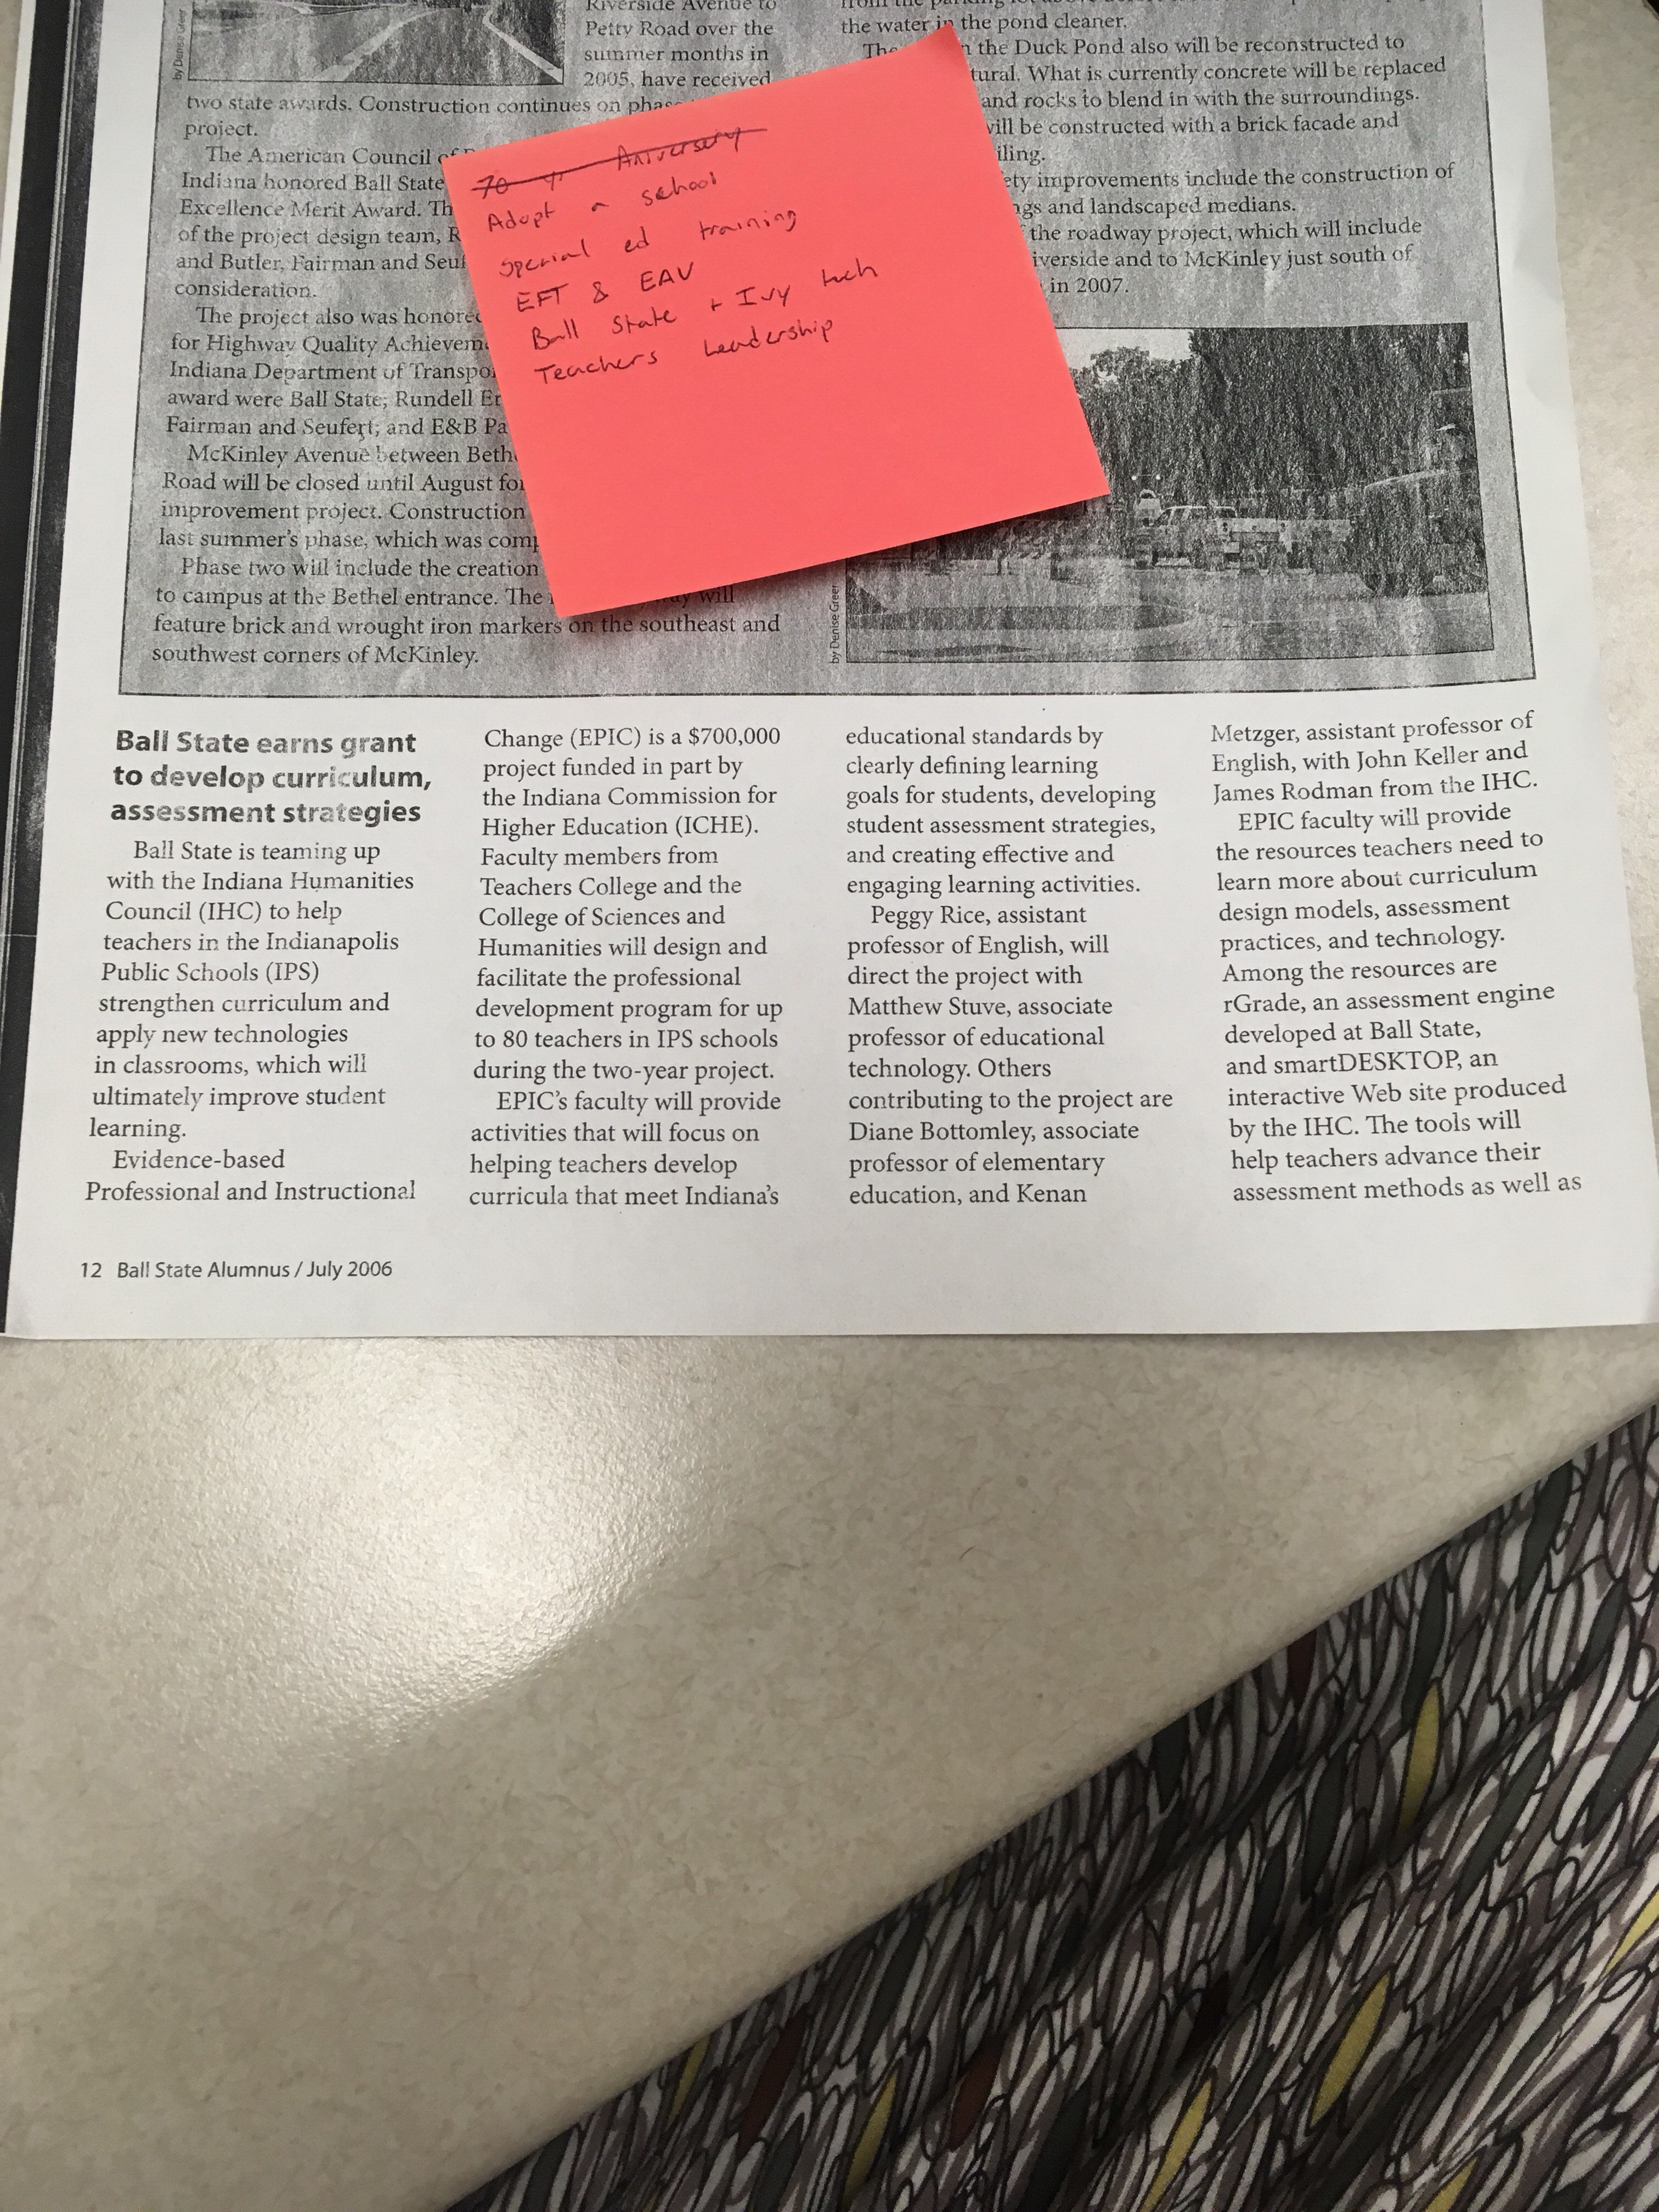 by Denise Greer
Riverside Avenue to
Petty Road over the
summer months in
2005, have received
two state awards. Construction continues on phase
project.
The American Council of
Indiana honored Ball State
Excellence Merit Award. Th
of the project design team, R
and Butler, Fairman and Seuf
consideration.
The project also was honored
for Highway Quality Achievem
Indiana Department of Transpo
award were Ball State; Rundell Er
Fairman and Seufert; and E&B Pa
McKinley Avenue between Beth
Road will be closed until August for
improvement project. Construction
last summer's phase, which was comp
Phase two will include the creation
to campus at the Bethel entrance. The will
feature brick and wrought iron markers on the southeast and
southwest corners of McKinley.
from the parking lot
the water in the pond cleaner.
The the Duck Pond also will be reconstructed to
tural. What is currently concrete will be replaced
and rocks to blend in with the surroundings.
will be constructed with a brick facade and
iling.
ety improvements include the construction of
ngs and landscaped medians.
the roadway project, which will include
iverside and to McKinley just south of
in 2007.
by Denise Greer
70 yr Aniversery
Adopt a school
special ed training
EFT & EAV
Ball State + Ivy tech
Teachers Leadership
Ball State earns grant
to develop curriculum,
assessment strategies
Ball State is teaming up
with the Indiana Humanities
Council (IHC) to help
teachers in the Indianapolis
Public Schools (IPS)
strengthen curriculum and
apply new technologies
in classrooms, which will
ultimately improve student
learning.
Evidence-based
Professional and Instructional
Change (EPIC) is a $700,000
project funded in part by
the Indiana Commission for
Higher Education (ICHE).
Faculty members from
Teachers College and the
College of Sciences and
Humanities will design and
facilitate the professional
development program for up
to 80 teachers in IPS schools
during the two-year project.
EPIC's faculty will provide
activities that will focus on
helping teachers develop
curricula that meet Indiana's
educational standards by
clearly defining learning
goals for students, developing
student assessment strategies,
and creating effective and
engaging learning activities.
Peggy Rice, assistant
professor of English, will
direct the project with
Matthew Stuve, associate
professor of educational
technology. Others
contributing to the project are
Diane Bottomley, associate
professor of elementary
education, and Kenan
Metzger, assistant professor of
English, with John Keller and
James Rodman from the IHC.
EPIC faculty will provide
the resources teachers need to
learn more about curriculum
design models, assessment
practices, and technology.
Among the resources are
rGrade, an assessment engine
developed at Ball State,
and smartDESKTOP, an
interactive Web site produced
by the IHC. The tools will
help teachers advance their
assessment methods as well as
12 Ball State Alumnus / July 2006